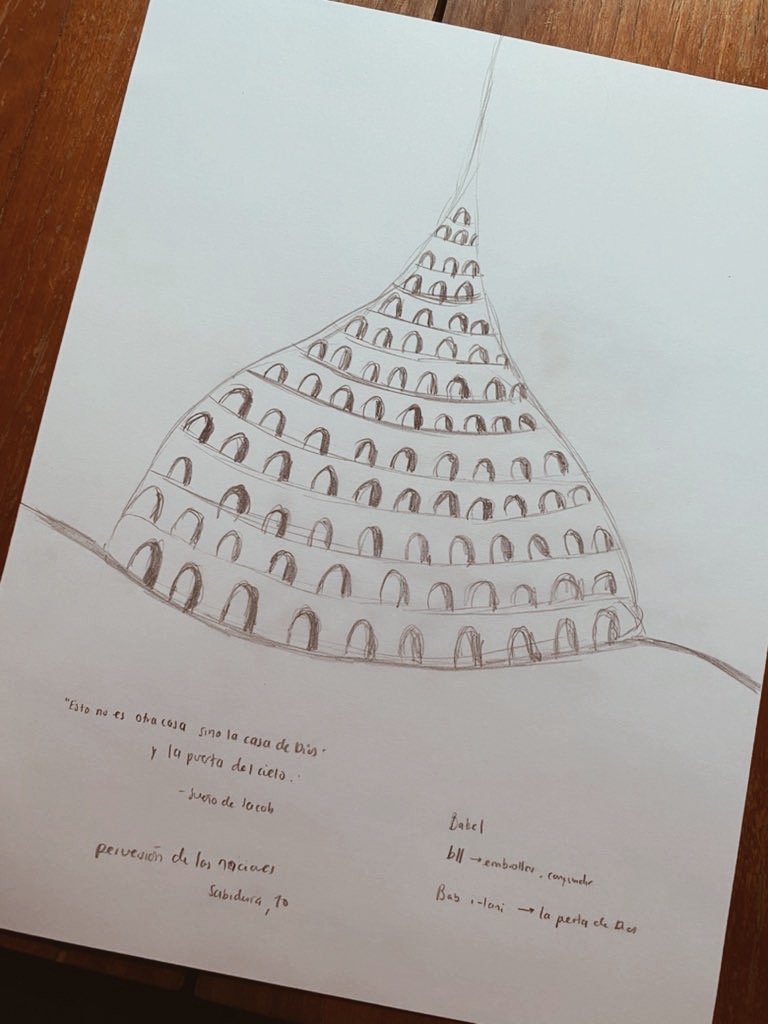 "Esto no es otra cosa sino la casa de Dios
y la puerta del cielo."
- sueño de Jacob
perversión de las naciones
Sabiduría, 10
Babel
bll → embrollar, confundir
Bab i-lani → la puerta de Dios